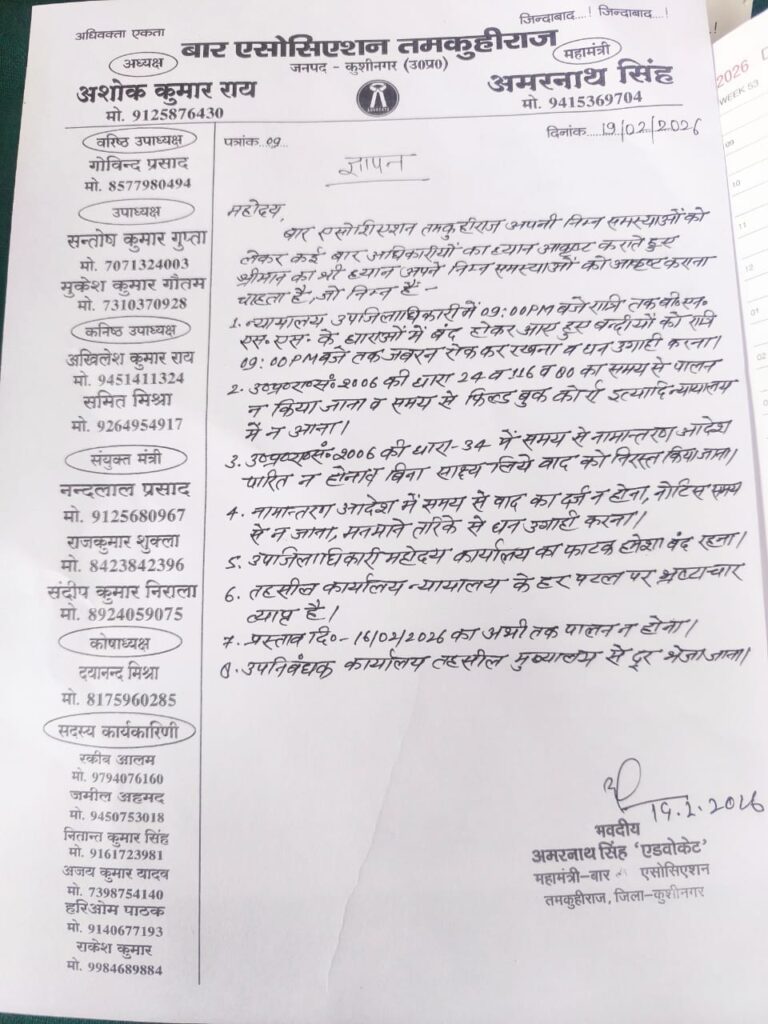 अधिवक्ता एकता
जिन्दाबाद....! जिन्दाबाद....!
बार एसोसिएशन तमकुहीराज
जनपद - कुशीनगर (उ०प्र०)
अध्यक्ष
अशोक कुमार राय
मो. 9125876430
महामंत्री
अमरनाथ सिंह
मो. 9415369704
वरिष्ठ उपाध्यक्ष
गोविन्द प्रसाद
मो. 8577980494
उपाध्यक्ष
सन्तोष कुमार गुप्ता
मो. 7071324003
मुकेश कुमार गौतम
मो. 7310370928
कनिष्ठ उपाध्यक्ष
अखिलेश कुमार राय
मो. 9451411324
समित मिश्रा
मो. 9264954917
संयुक्त मंत्री
नन्दलाल प्रसाद
मो. 9125680967
राजकुमार शुक्ला
मो. 8423842396
संदीप कुमार निराला
मो. 8924059075
कोषाध्यक्ष
दयानन्द मिश्रा
मो. 8175960285
सदस्य कार्यकारिणी
रकीब आलम
मो. 9794076160
जमील अहमद
मो. 9450753018
नितान्त कुमार सिंह
मो. 9161723981
अजय कुमार यादव
मो. 7398754140
हरिओम पाठक
मो. 9140677193
राकेश कुमार
मो. 9984689884
पत्रांक..09..
दिनांक....19/02/2026
ज्ञापन
महोदय,
बार एसोशिएशन तमकुहीराज अपनी निम्न समस्याओं को
लेकर कई बार अधिकारीयों का ध्यान आकृष्ट कराते हुए
श्रीमान का भी ध्यान अपने निम्न समस्याओं को आकृष्ट कराना
चाहता है, जो निम्न है -
1. न्यायालय उपजिलाधिकारी में 09:00PM बजे रात्रि तक बी.एन.
एस.एस. के धाराओं में बंद होकर आए हुए बन्दीयों को रात्रि
09:00 PM बजे तक जबरन रोक कर रखना व धन उगाही करना।
2. उ०प्र०रा०सं० 2006 की धारा 24 व 116 व 80 का समय से पालन
न किया जाना व समय से फिल्ड बुक कोर्रा इत्यादि न्यायालय
में न आना।
3. उ०प्र०रा०सं० 2006 की धारा-34 में समय से नामान्तरण आदेश
पारित न होना व बिना साक्ष्य लिये वाद को निरस्त किया जाना।
4. नामान्तरण आदेश में समय से वाद का दर्ज न होना, नोटिस समय
से न जाना, मनमाने तरिके से धन उगाही करना।
5. उपजिलाधिकारी महोदय कार्यालय का फाटक हमेशा बंद रहना।
6. तहसील कार्यालय न्यायालय के हर पटल पर भ्रष्टाचार
व्याप्त है।
7. प्रस्ताव दि०- 16/02/2026 का अभी तक पालन न होना।
8. उपनिबंधक कार्यालय तहसील मुख्यालय से दूर भेजा जाना।
19.2.2026
भवदीय
अमरनाथ सिंह 'एडवोकेट'
महामंत्री-बार एसोसिएशन
तमकुहीराज, जिला-कुशीनगर
2026
WEEK 53